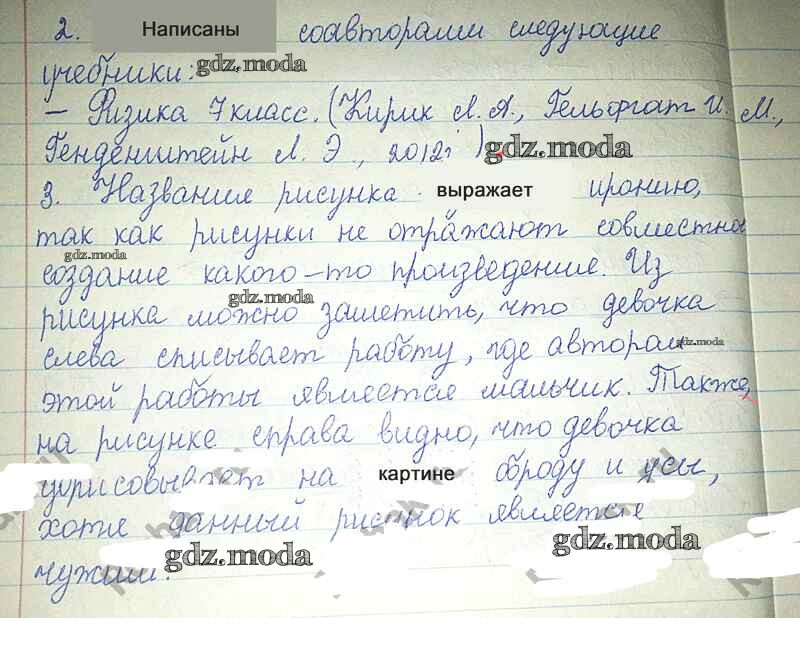 2. Написаны соавторами следующие
учебники: gdz.moda
– Физика 7 класс. (Кирик Л. А., Гельфгат И. М.,
Генденштейн Л. Э., 2012г) gdz.moda
3. Название рисунка выражает иронию,
так как рисунки не отражают совместно
gdz.moda
создание какого-то произведение. Из
gdz.moda
рисунка можно заметить, что девочка
слева списывает работу, где автором gdz.moda
этой работы является мальчик. Также,
на рисунке справа видно, что девочка
дорисовывает на картине бороду и усы,
хотя данный рисунок является
чужим. gdz.moda gdz.moda